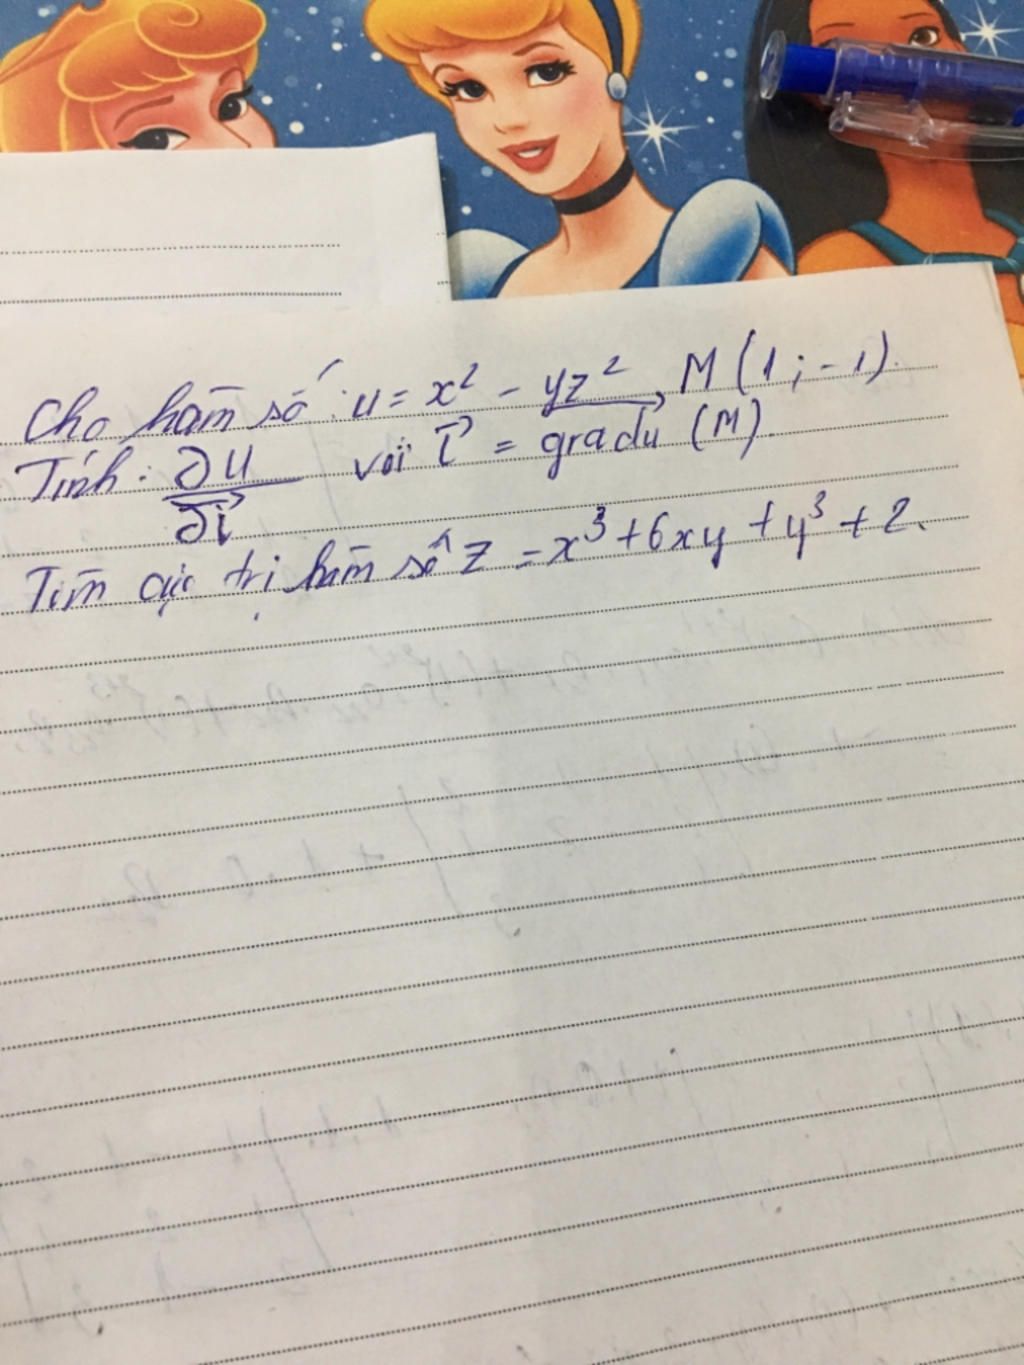 Cho hàm số: u = x² - yz², M(1; -1).
Tính: ∂u/∂l⃗ với l⃗ = gradu (M).
Tìm cực trị hàm số z = x³ + 6xy + y³ + 2.